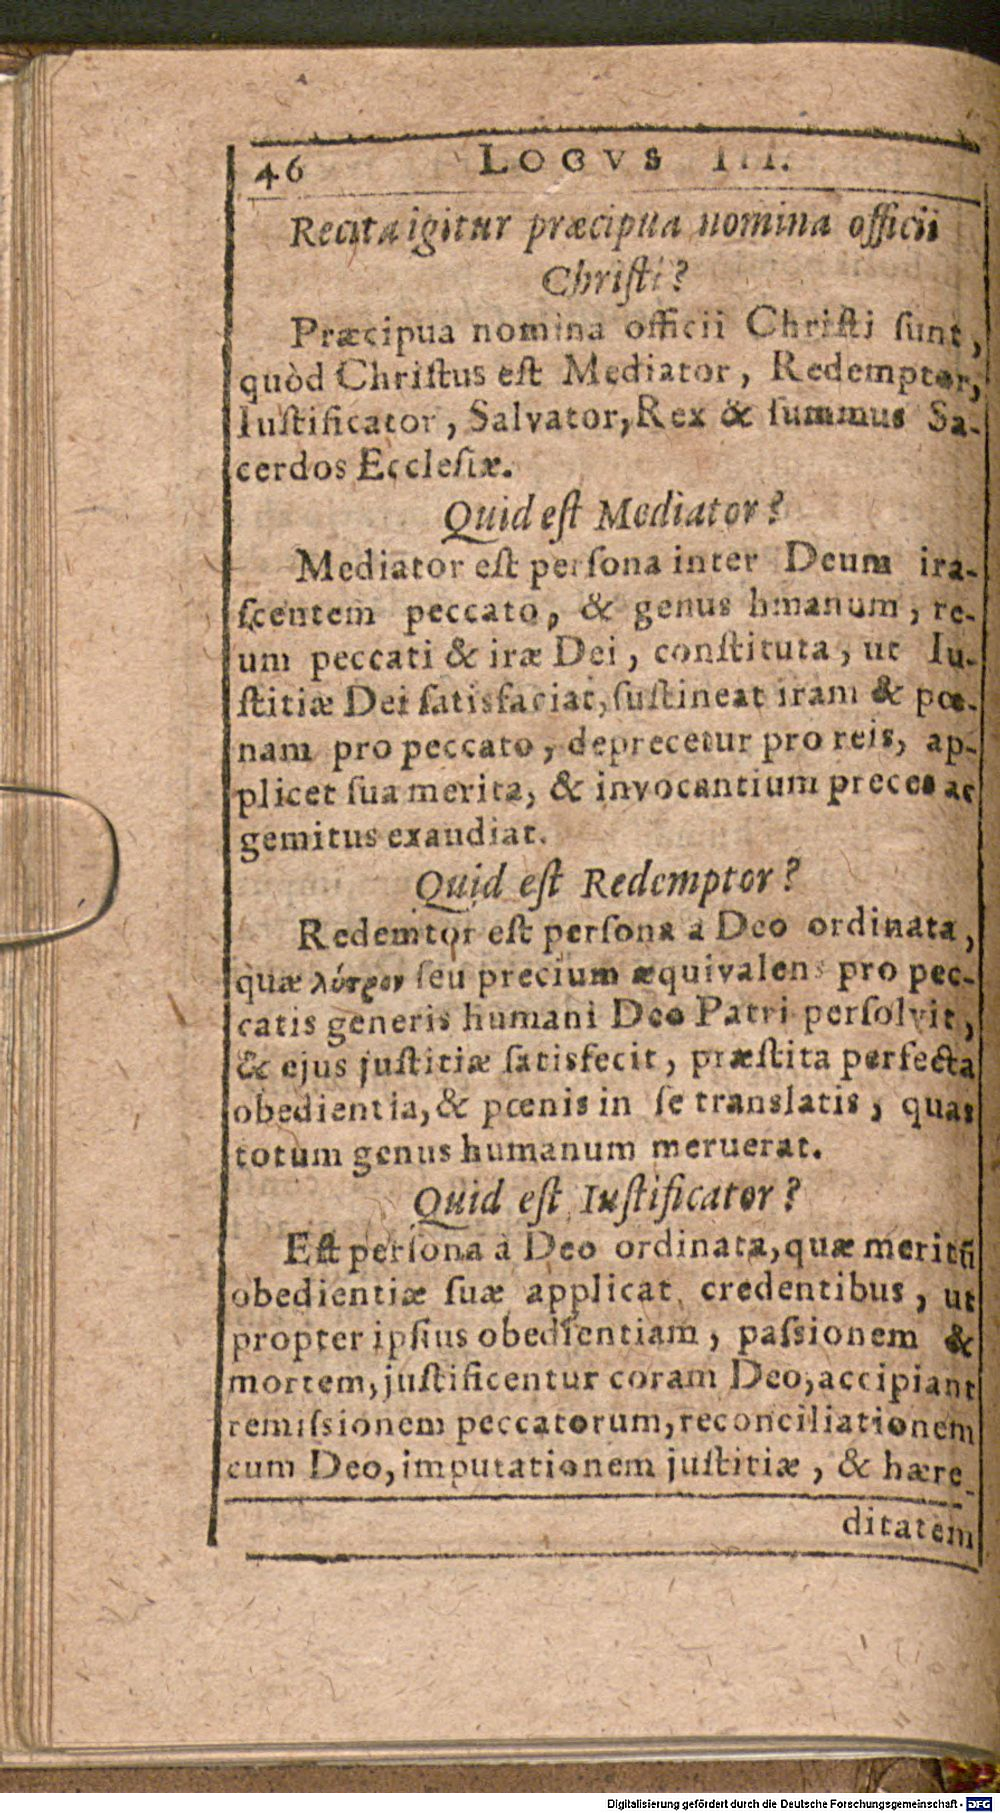 46 LOCVS III.
Recita igitur præcipua nomina officii
Chriſti?
Præcipua nomina officii Chriſti ſunt,
quòd Chriſtus eſt Mediator, Redemptor,
Iuſtificator, Salvator, Rex & ſummus Sa-
cerdos Eccleſiæ.
Quid eſt Mediator?
Mediator eſt perſona inter Deum ira-
ſcentem peccato, & genus hmanum, re-
um peccati & iræ Dei, conſtituta, ut Iu-
ſtitiæ Dei ſatisfaciat, ſuſtineat iram & pœ-
nam pro peccato, deprecetur pro reis, ap-
plicet ſua merita, & invocantium preces ac
gemitus exaudiat.
Quid eſt Redemptor?
Redemtor eſt perſona a Deo ordinata,
quæ λύτρον ſeu precium æquivalens pro pec-
catis generis humani Deo Patri perſolvit,
& ejus juſtitiæ ſatisfecit, præſtita perfecta
obedientia, & pœnis in ſe translatis, quas
totum genus humanum meruerat.
Quid eſt Iuſtificator?
Eſt perſona à Deo ordinata, quæ meritũ
obedientiæ ſuæ applicat credentibus, ut
propter ipſius obedientiam, paſsionem &
mortem, juſtificentur coram Deo, accipiant
remiſsionem peccatorum, reconciliationem
cum Deo, imputationem juſtitiæ, & hære-
ditatem
Digitalisierung gefördert durch die Deutsche Forschungsgemeinschaft - DFG